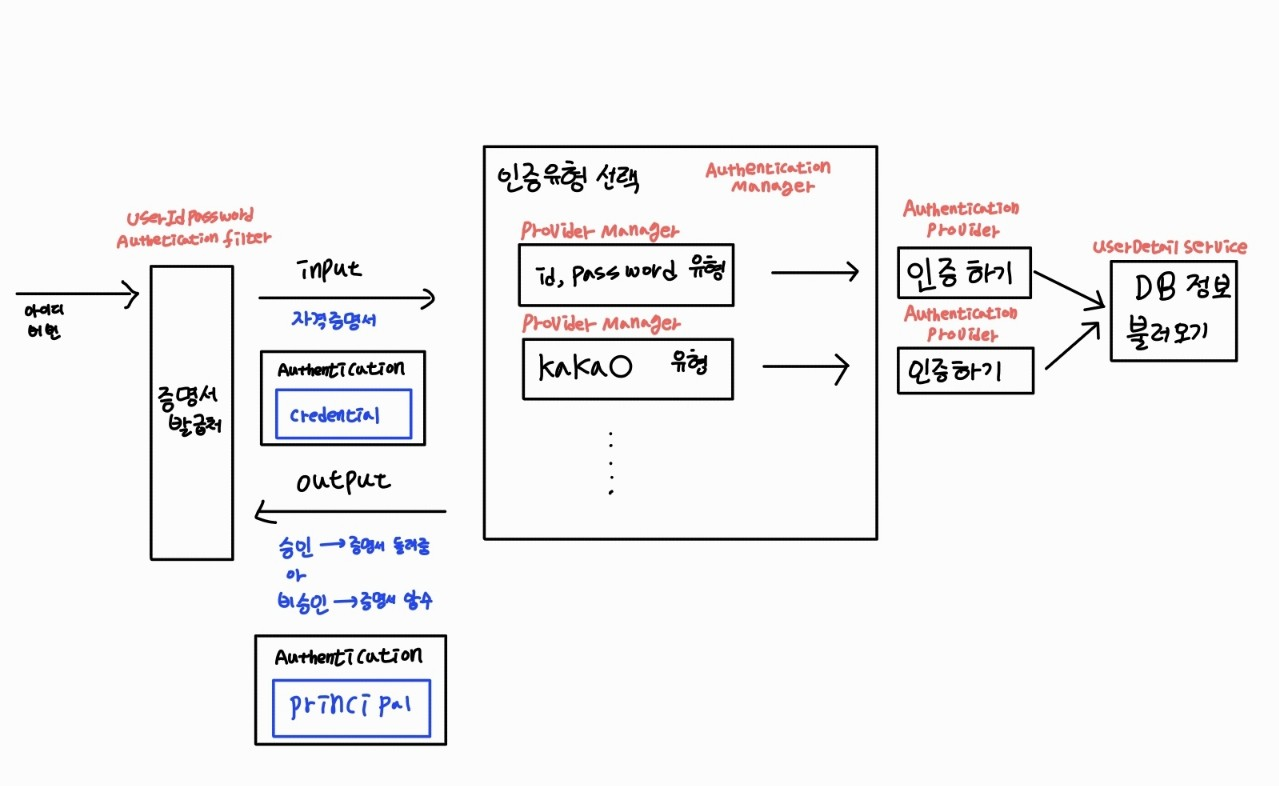 UserIdPassword
Authetication filter
아이디
비번
증명서
발급처
input
자격증명서
Authentication
credential
output
승인 → 증명서 돌려줌
or
비승인 → 증명서 압수
Authentication
principal
인증유형 선택
Authentication
Manager
Provider Manager
id, password 유형
Provider Manager
kakao 유형
Authentication
Provider
인증하기
Authentication
Provider
인증하기
UserDetail Service
DB 정보
불러오기